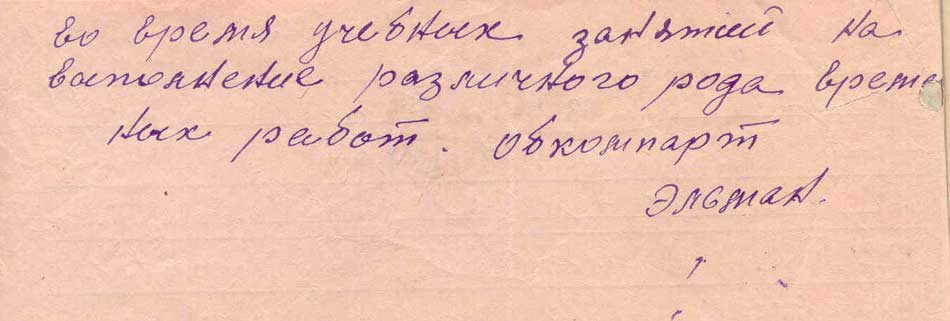 во время учебных занятий на
выполнение различного рода времен
ных работ. обкомпарт
Эльман.